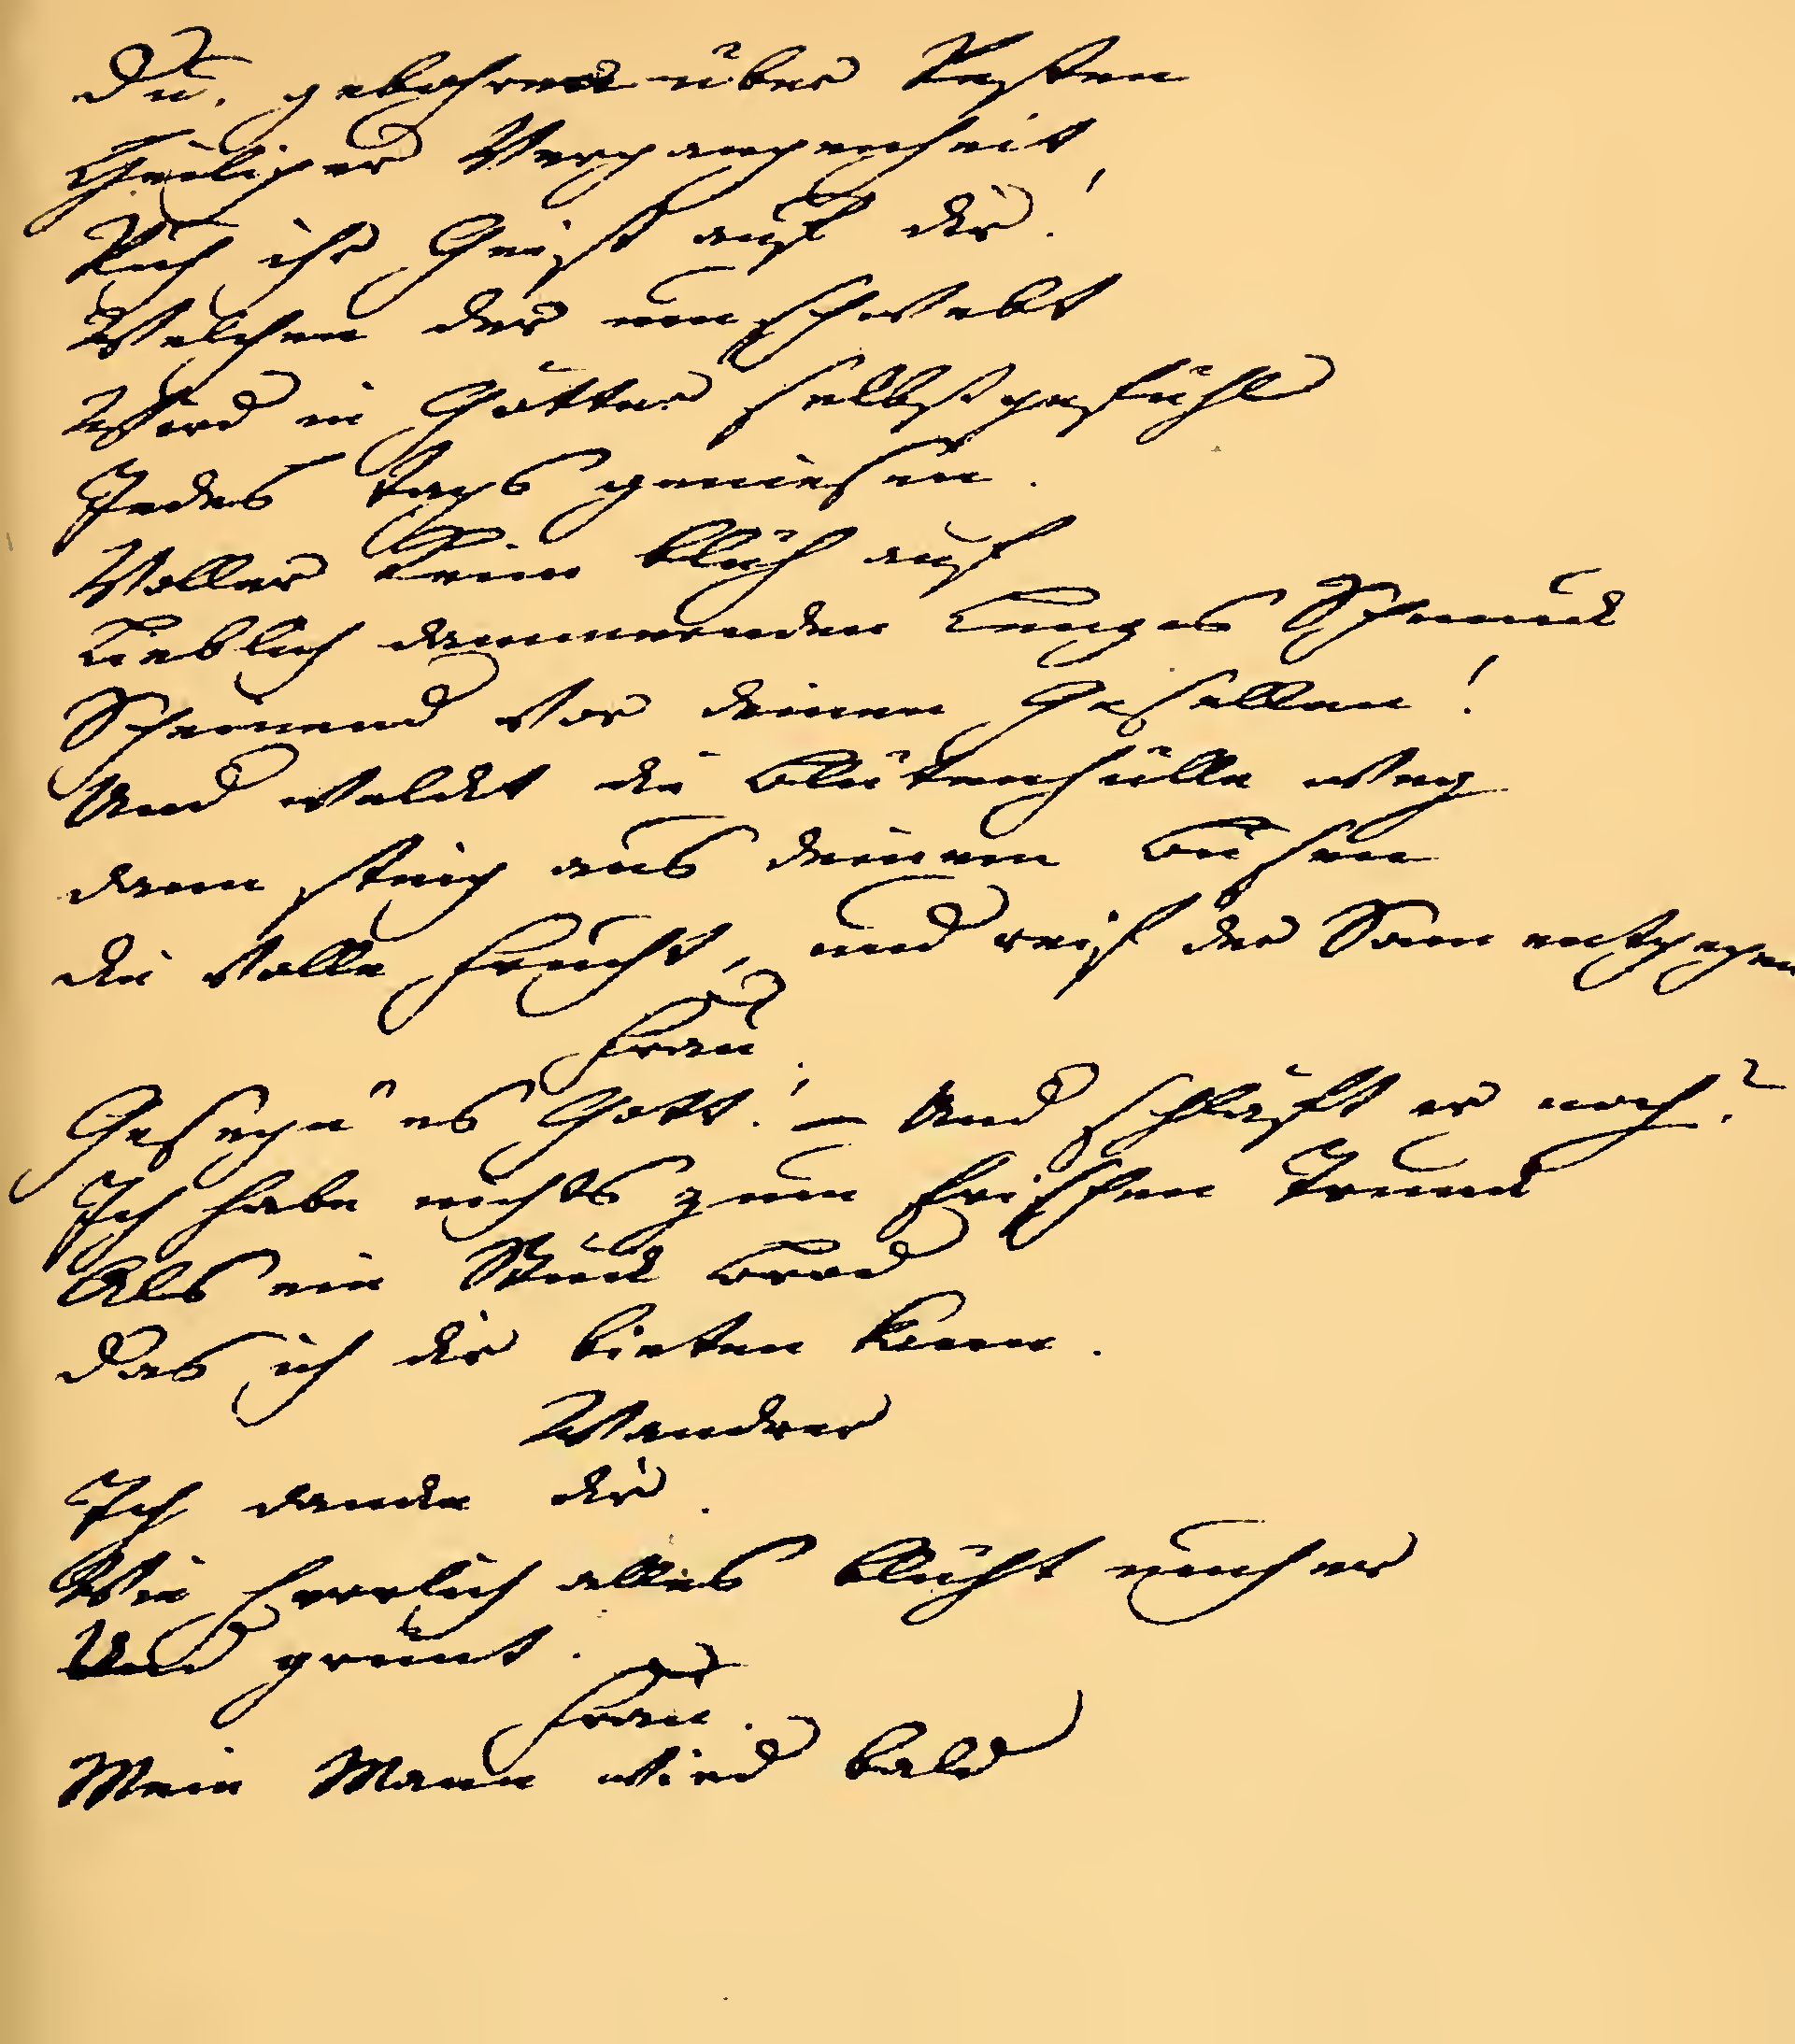 Du, gebohren über Resten
Heiliger Vergangenheit,
Ruh ihr Geist auf dir!
Welchen der umschwebt
Wird in Götter selbstgefühl
Jedes Tags geniesen.
Voller Keim blüh auf
Lieblich dämmernden Lenzes Schmuck
Scheinend vor deinen Gesellen!
Und welckt die Blütenhülle weg
dann steig aus deinem Busen
die volle Frucht, und reif der Sonn entgegen
Frau.
Gesegn' es Gott! — Und schläft er noch?
Ich habe nichts zum frischen Trunck
Als ein Stück Brod
Das ich dir bieten kann.
Wandrer
Ich dancke dir.
Wie herrlich alles blüht umher
Und grünt.
Frau.
Mein Mann wird bald